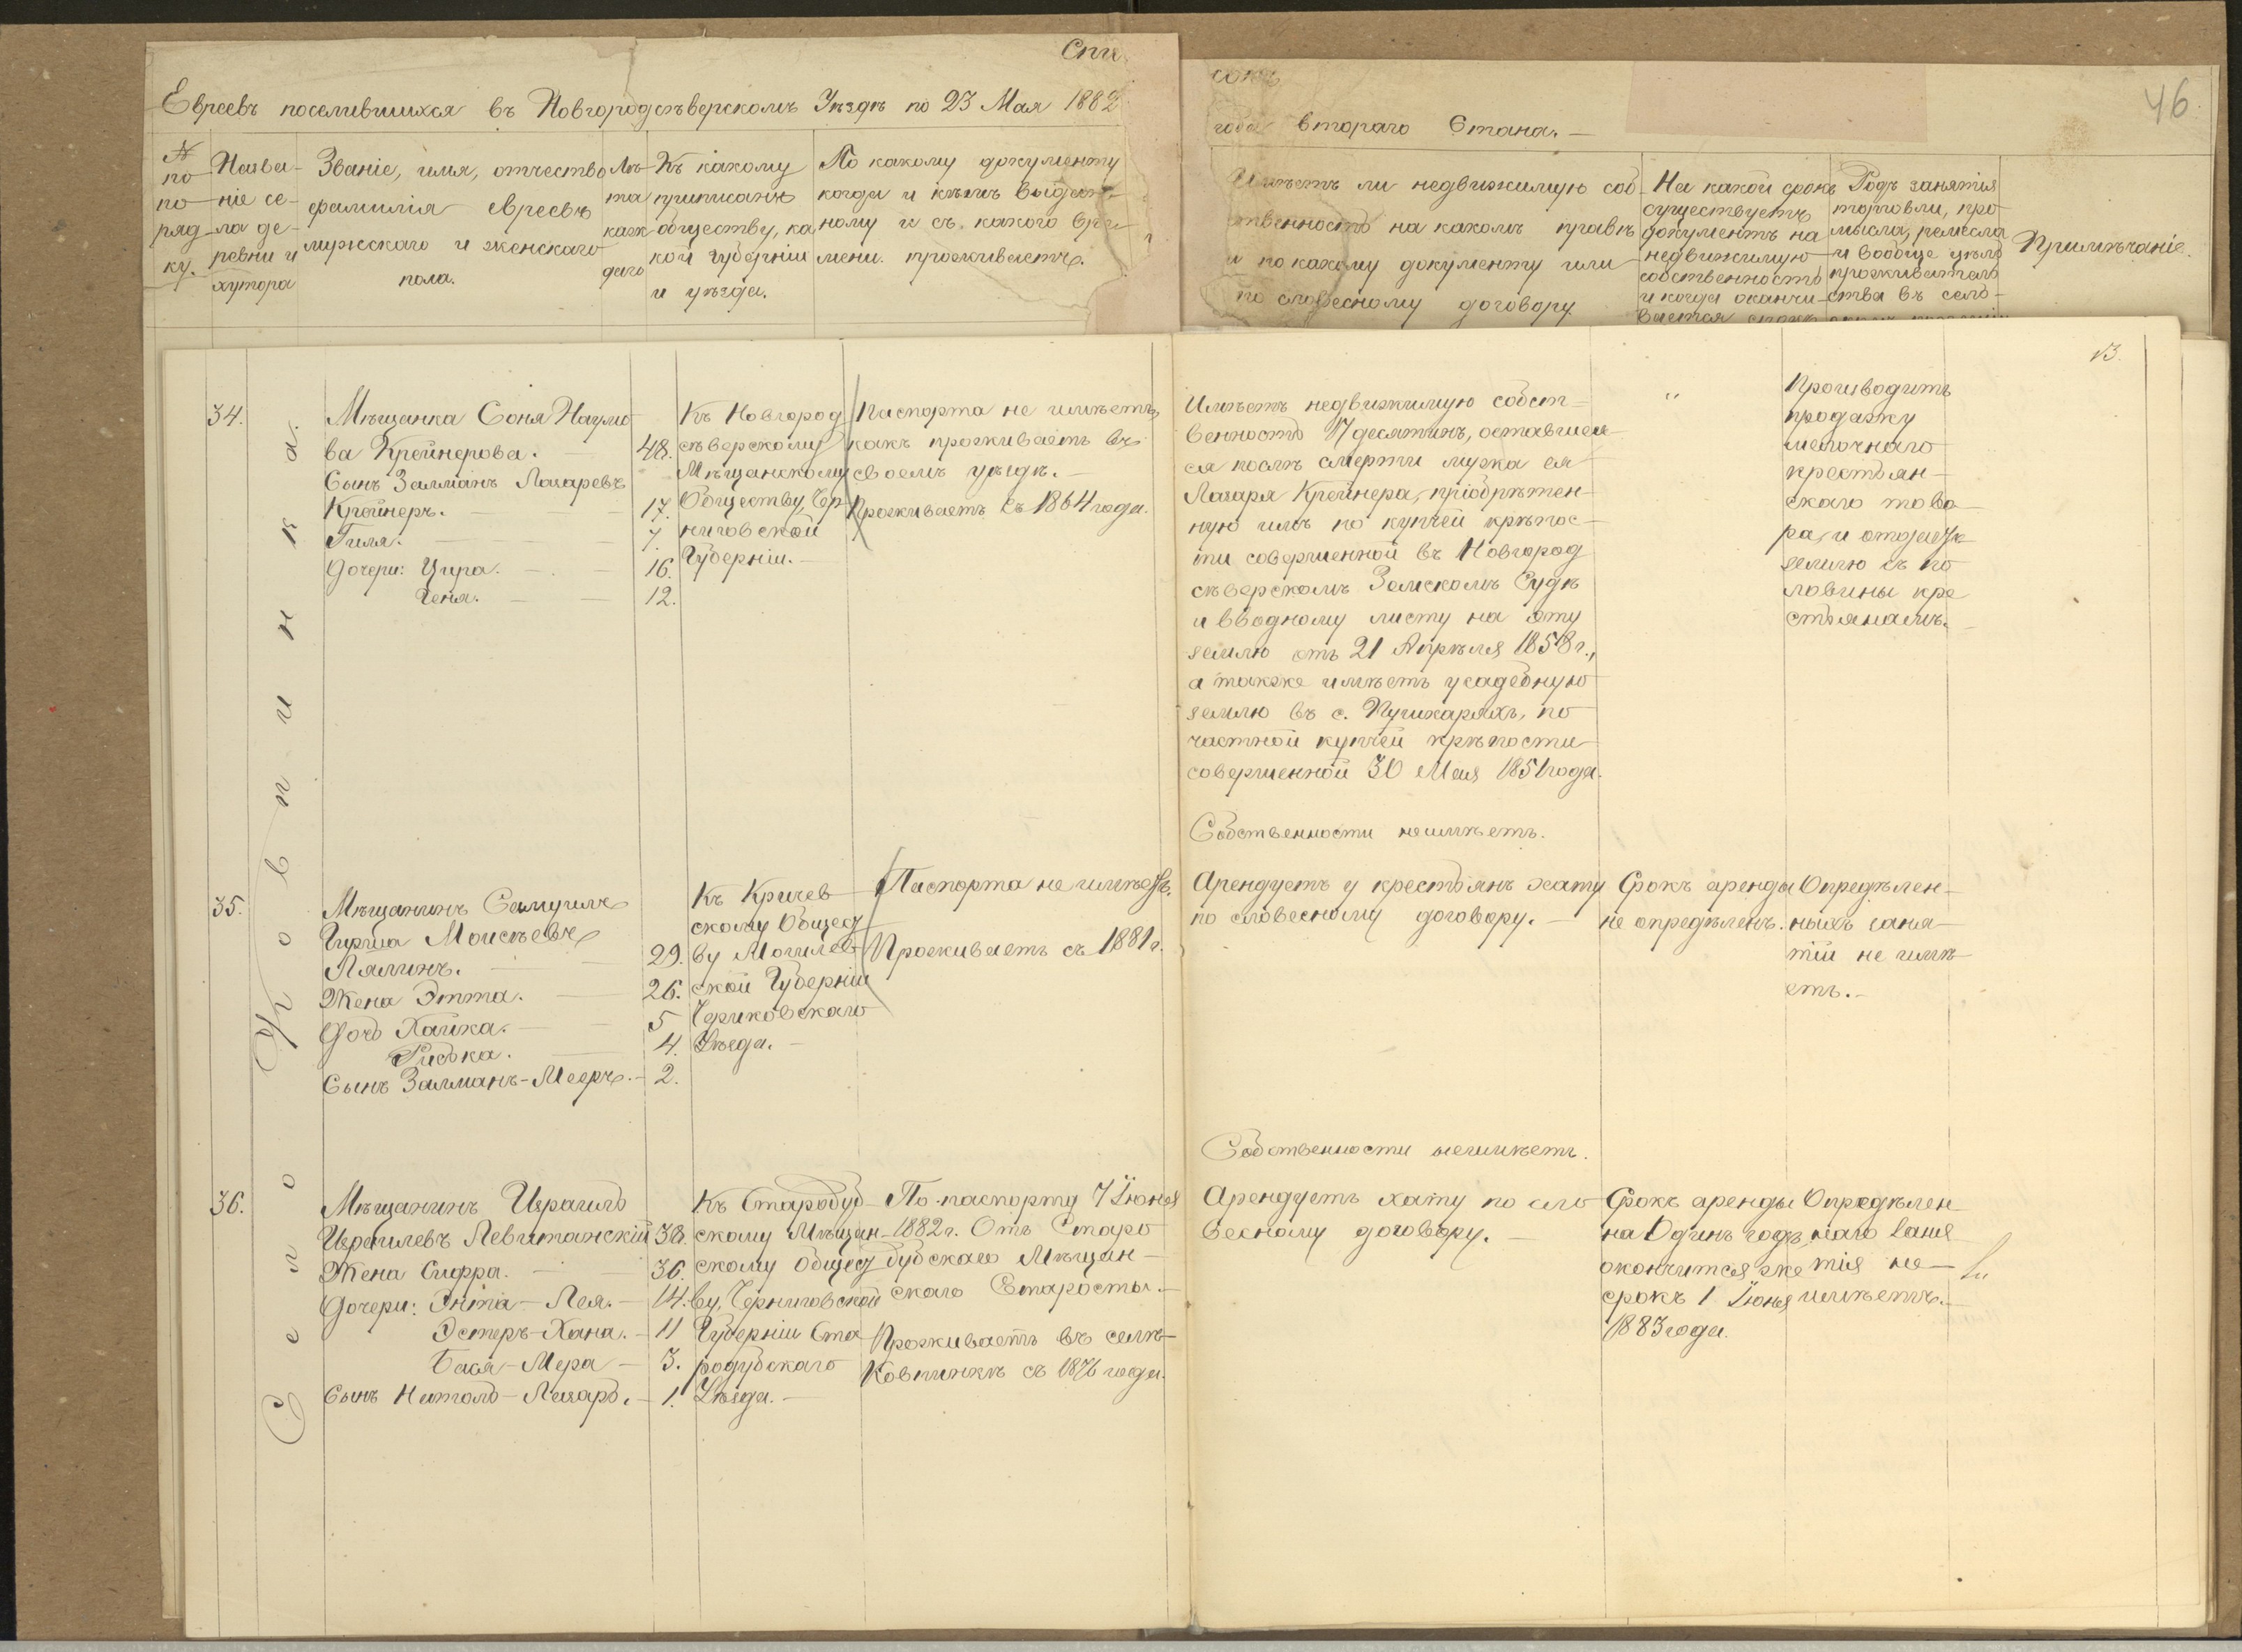 Спи
Евреевъ поселившихся въ Новгородсѣверскомъ Уѣздѣ по 23 Мая 1882
№ по порядку.
Названіе села деревни и хутора
Званіе, имя, отчество
фамилія евреевъ
мужскаго и женскаго
пола.
Лѣ-
та
каж
даго
Къ какому
приписанъ
обществу, ка
кой губерніи
и уѣзда.
По какому документу
когда и кѣмъ выдан-
ному и съ какого вре-
мени проживаетъ.
сокъ
46
года втораго Стана.—
Имѣетъ ли недвижимую соб-
ственность на какомъ правѣ
и по какому документу или
по словесному договору
На какой срокъ
существуетъ
документъ на
недвижимую
собственность
и когда оканчи-
вается срокъ
Родъ занятія
торговли, про
мысла, ремесла
и вообще цѣль
прожитель
ства въ село-
Примѣчаніе.
13.
Село Ковпинка.
34.
Мѣщанка Соня Наумо
ва Крейнерова. — 48.
Сынъ Залманъ Лазаревъ
Крейнеръ. — 17.
Гиля. — 7
Дочери: Цира. — 16.
Геня. — 12.
Къ Новгород
сѣверскому
Мѣщанскому
Обществу, Чер
ниговской
Губерніи.—
Паспорта не имѣетъ,
какъ проживаетъ въ
своемъ уѣздѣ.—
Проживаетъ съ 1864 года.
Имѣетъ недвижимую собст-
венность 17 десятинъ, оставшей-
ся послѣ смерти мужа ея
Лазаря Крейнера, пріобрѣтен-
ную имъ по купчей крѣпос-
ти совершенной въ Новгород
сѣверскомъ Земскомъ Судѣ
и вводному листу на эту
землю отъ 21 Апрѣля 1858 г.,
а также имѣетъ усадебную
землю въ с. Пушкаряхъ, по
частной купчей крѣпости
совершенной 30 Мая 1851 года.
"
Производитъ
продажу
мелочнаго
крестьян-
скаго това
ра, и отдаетъ
землю съ по
ловины кре
стьянамъ.
35.
Мѣщанинъ Самуилъ
Гирша Моисѣевъ
Лялинъ. — 29.
Жена Этта. — 26.
Дочь Хайка. — 5
Риська. — 4.
Сынъ Залманъ-Мееръ.— 2.
Къ Кричев
скому Общест
ву Могилев
ской Губерніи
Чериковскаго
Уѣзда.—
Паспорта не имѣетъ.
Проживаетъ съ 1881 г.
Собственности неимѣетъ.
Арендуетъ у крестьянъ хату
по словесному договору.—
Срокъ аренды
не опредѣленъ.
Опредѣлен-
ныхъ заня-
тій не имѣ-
етъ.—
36.
Мѣщанинъ Израиль
Израилевъ Левитанскій 38.
Жена Сифра. — 36.
Дочери: Энта-Лея.— 14.
Эстеръ-Хана.— 11
Бася-Мера — 3.
Сынъ Натоль-Лазарь.— 1.
Къ Стародуб
скому Мѣщан-
скому общест
ву, Черниговской
Губерніи Ста
родубскаго
Уѣзда.—
По паспорту 7 Іюня
1882 г. Отъ Старо
дубскаго Мѣщан-
скаго Старосты.—
Проживаетъ въ селѣ
Ковпинкѣ съ 1876 года.
Собственности неимѣетъ.
Арендуетъ хату по сло
весному договору.—
Срокъ аренды
на Одинъ годъ,
окончится же
срокъ 1 Іюня
1883 года.
Опредѣлен
наго заня
тія не
имѣетъ.—